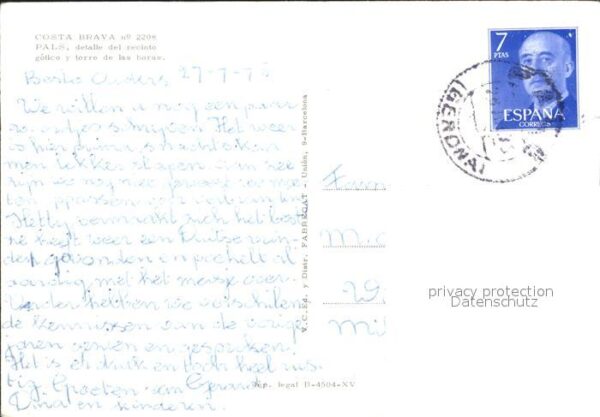 COSTA BRAVA nº 2206
PALS, detalle del recinto
gótico y torre de las horas.
Beste Ouders 27-7-75
We willen u nog een paar
woordjes schrijven Het weer
is hier prima, s nachts kan
men lekker slapen. Aan zee
zijn we nog niet geweest we moe
ten oppassen van
Hetty vermaakt zich het best
ze heeft weer een Duitse vrien
din gevonden en
aardig met het meisje over.
Verder hebben we verschillen
de kennissen van de vorige
jaren gezien en gesproken.
Het is er druk en toch heel rus
tig. Groeten van Gerard
Dina en kinderen.
V.C. Ed. y Distr. FABREGAT - Unión, 9-Barcelona
Dep. legal B-4504-XV
7
PTAS
ESPAÑA
CORREOS
(GERONA)
Fam
M.
W
Mi
privacy protection
Datenschutz